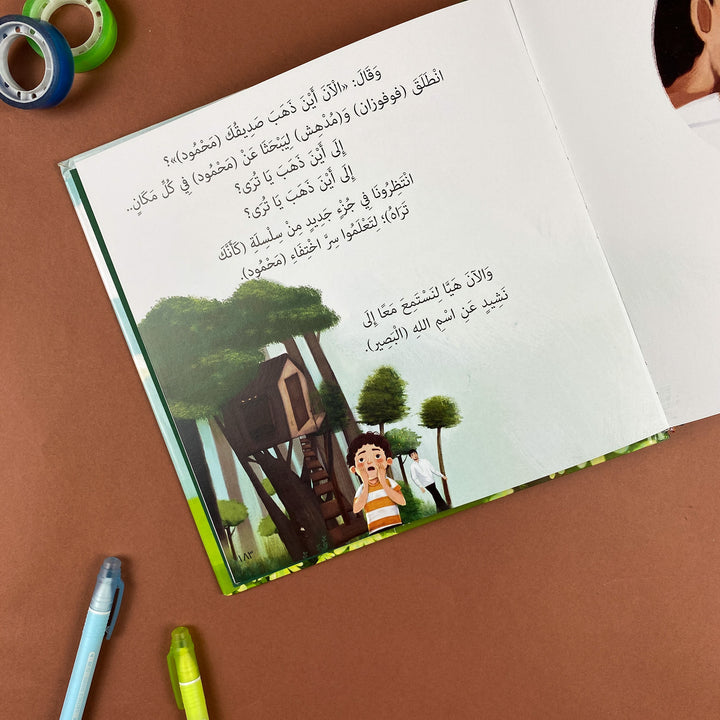 وَقَالَ: «الْآنَ أَيْنَ ذَهَبَ صَدِيقُكَ (مَحْمُود)»؟
انْطَلَقَ (فوفوزان) وَ(مُدْهِش) لِيَبْحَثَا عَنْ (مَحْمُود) فِي كُلِّ مَكَانٍ..
إِلَى أَيْنَ ذَهَبَ يَا تُرَى؟
إِلَى أَيْنَ ذَهَبَ يَا تُرَى؟
انْتَظِرُونَا فِي جُزْءٍ جَدِيدٍ مِنْ سِلْسِلَةِ (كَأَنَّكَ
تَرَاهُ)؛ لِتَعْلَمُوا سِرَّ اخْتِفَاءِ (مَحْمُود).
وَالآنَ هَيَّا لِنَسْتَمِعَ مَعًا إِلَى
نَشِيدٍ عَنِ اسْمِ اللهِ (الْبَصِير).
١٨٣